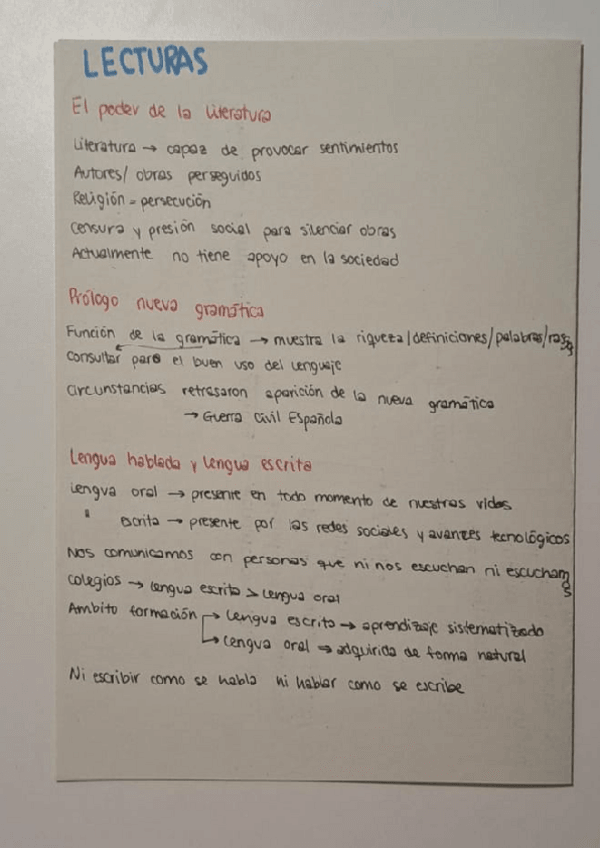 LECTURAS
El poder de la literatura
Literatura → capaz de provocar sentimientos
Autores/ obras perseguidos
Religión = persecución
censura y presión social para silenciar obras
Actualmente no tiene apoyo en la sociedad
Prólogo nueva gramática
Función de la gramática → muestra la riqueza/definiciones/palabras/
consultar para el buen uso del lenguaje
circunstancias retrasaron aparición de la nueva gramática
→ Guerra Civil Española
Lengua hablada y lengua escrita
Lengua oral → presente en todo momento de nuestras vidas
" escrita → presente por las redes sociales y avances tecnológicos
Nos comunicamos con personas que ni nos escuchan ni escuchamos
colegios → lengua escrita > lengua oral
Ambito formación → Lengua escrita → aprendizaje sistematizado
→ Lengua oral → adquirida de forma natural
Ni escribir como se habla ni hablar como se escribe